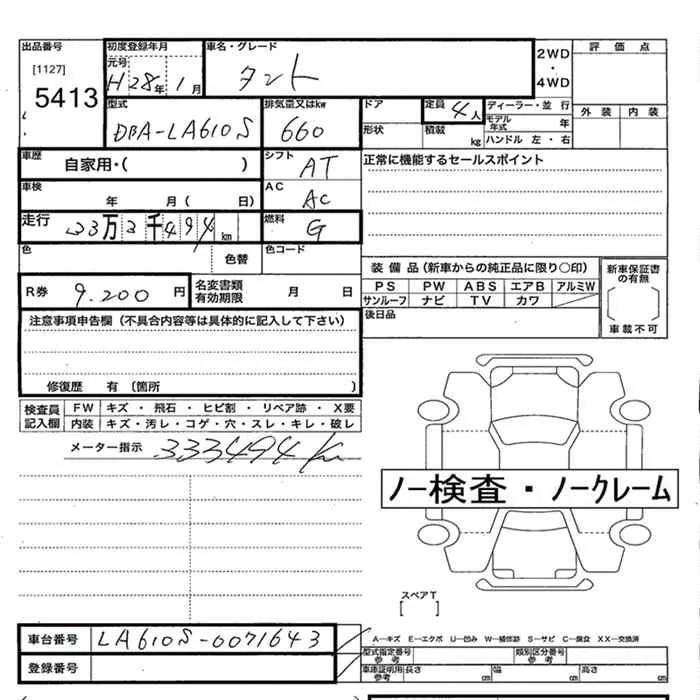 出品番号 初度登録年月 車名・グレード 2WD・4WD 評価点
[1127] 元号
5413 H28年1月 タント 外装 内装
型式 排気量又はkw ドア 定員 4人 ディーラー・並行
DBA-LA610S 660 形状 積載 kg モデル年式 年
ハンドル 左・右
車歴 自家用・( ) シフト AT 正常に機能するセールスポイント
車検 年 月( 日) AC AC
走行 33万3千494km 燃料 G
色 色替 色コード
R券 9.200円 名変書類有効期限 月 日
装備品(新車からの純正品に限り○印) 新車保証書の有無
PS PW ABS エアB アルミW
サンルーフ ナビ TV カワ
後日品 車載不可
注意事項申告欄(不具合内容等は具体的に記入して下さい)
修復歴 有(箇所 )
検査員記入欄 FW キズ・飛石・ヒビ割・リペア跡・X要
内装 キズ・汚レ・コゲ・穴・スレ・キレ・破レ
メーター指示 333494km
ノー検査・ノークレーム
スペアT
[ ]
車台番号 LA610S-0071643
登録番号
A―キズ E―エクボ U―凹み W―補修跡 S―サビ C―腐食 XX―交換済
型式指定番号 参考 類別区分番号 参考
車庫証明用 参考 長さ cm 幅 cm 高さ cm